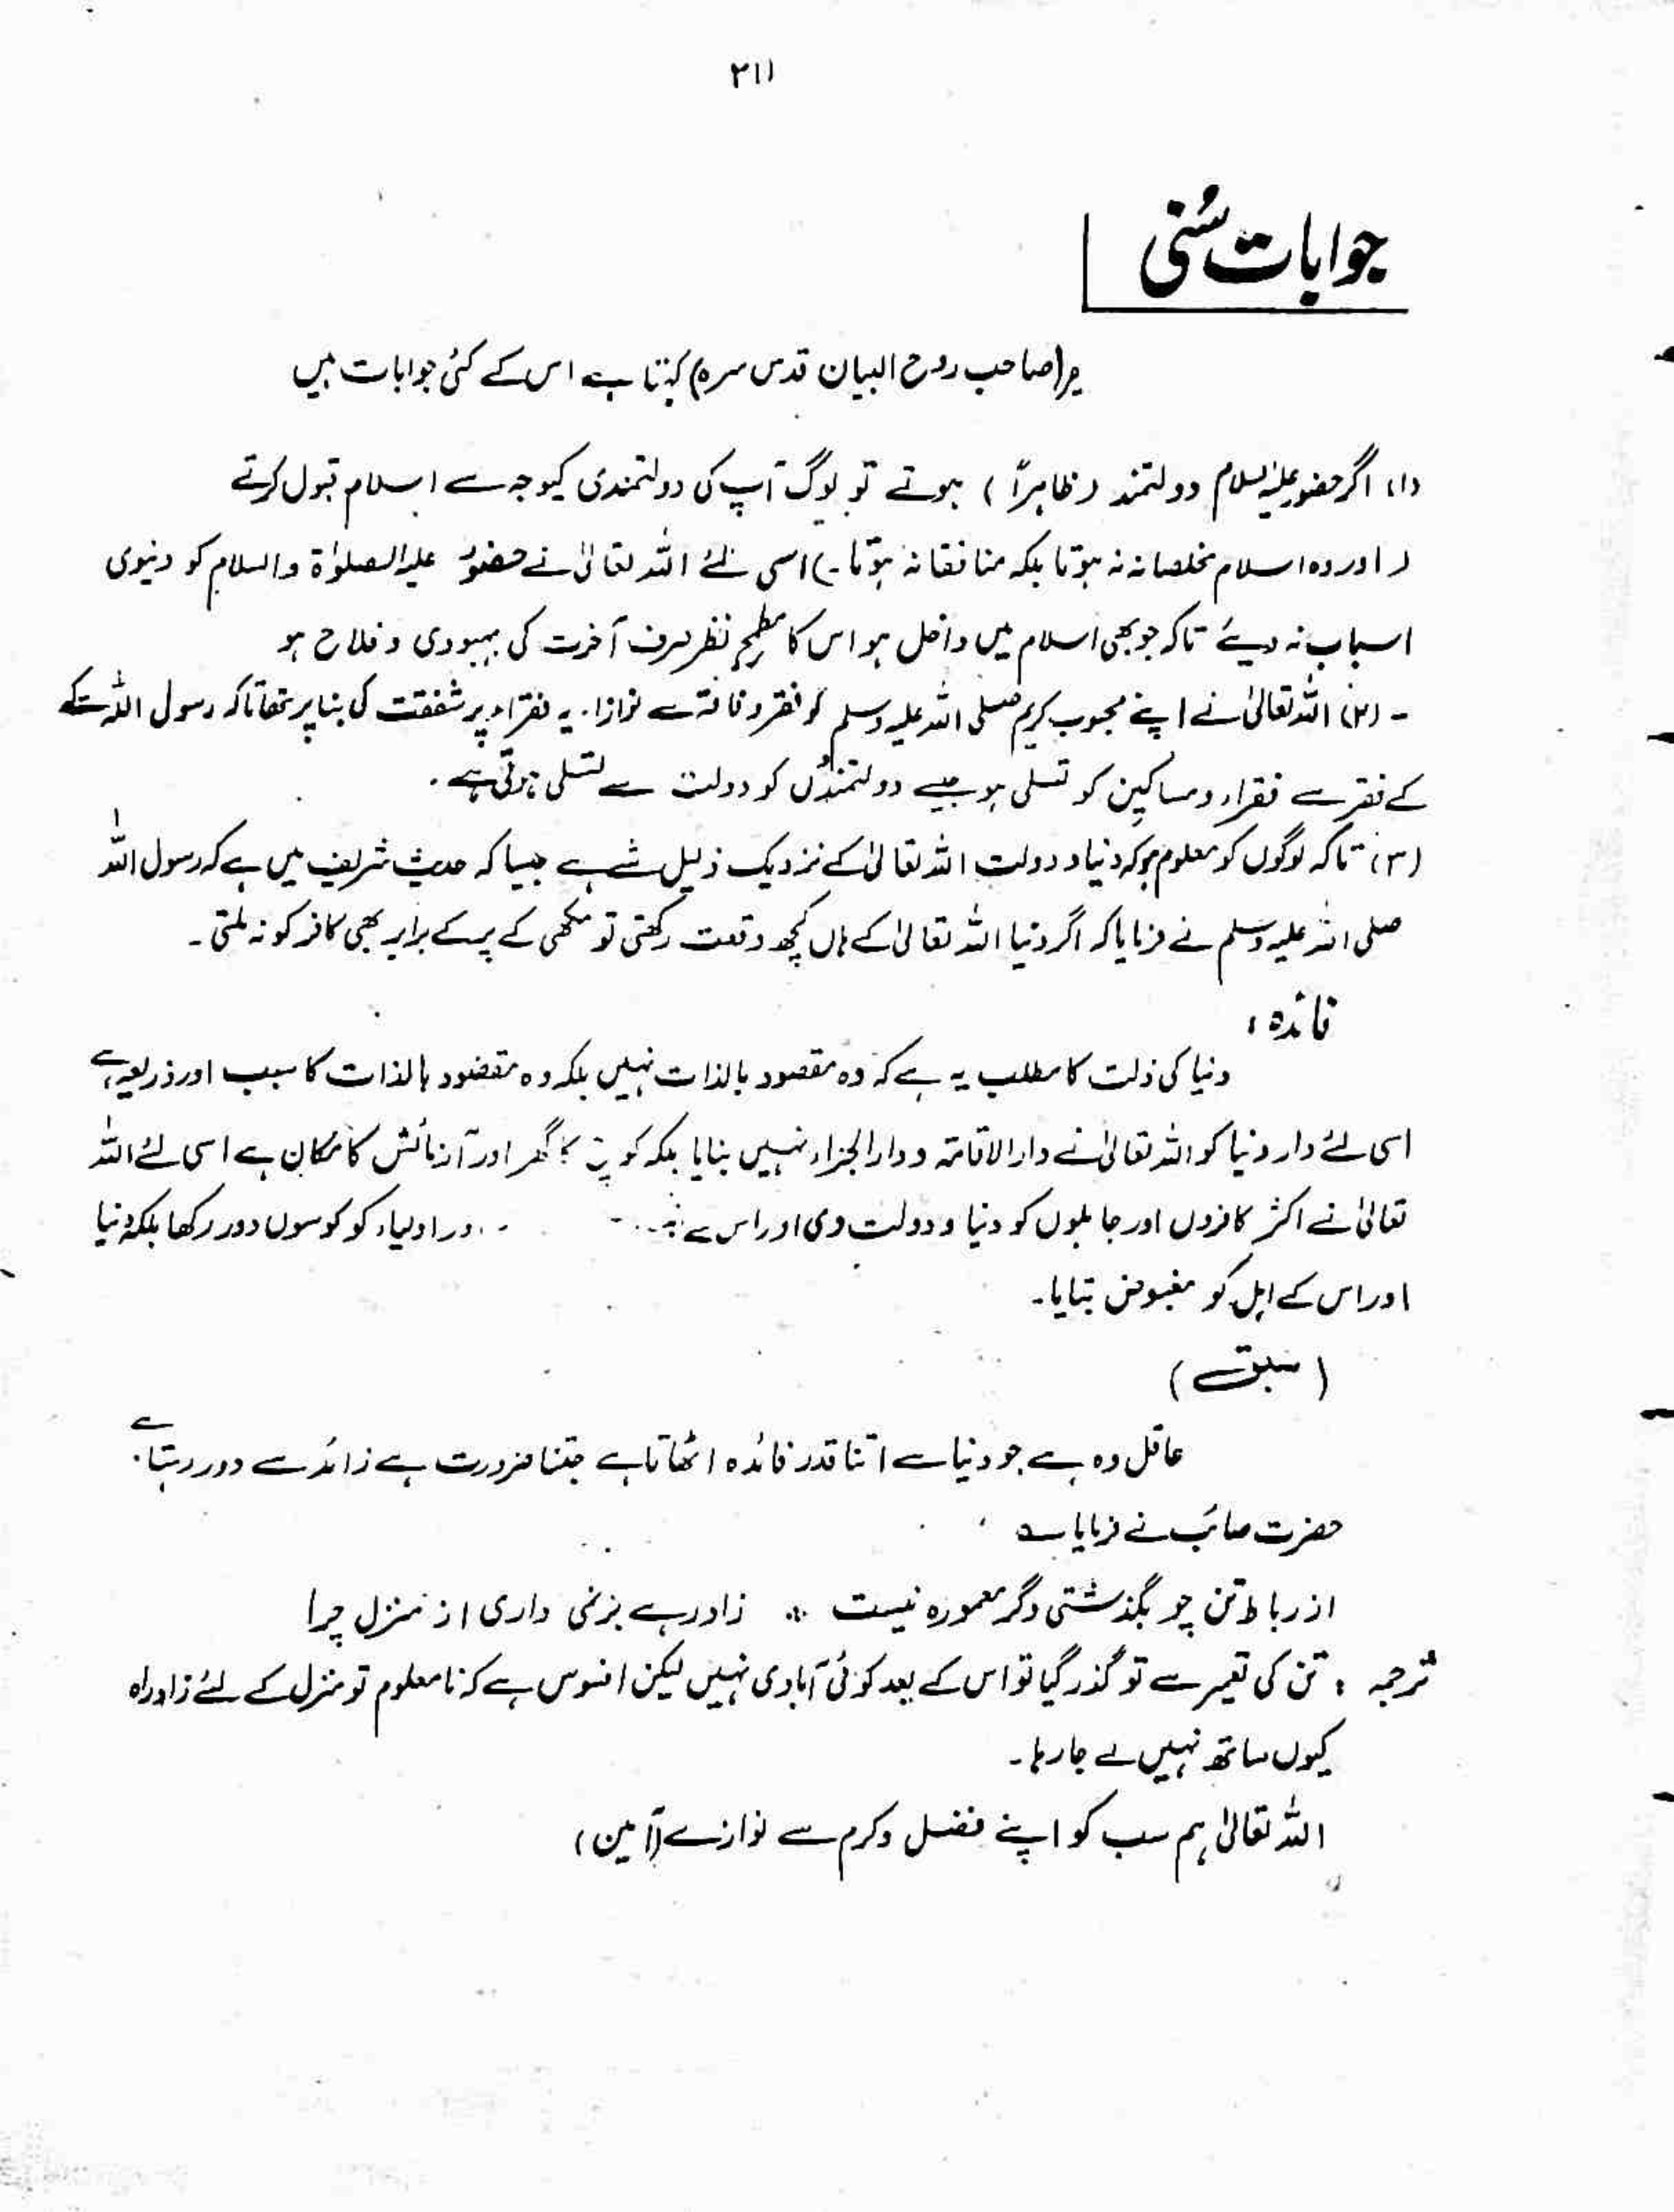 ۲۱۱
جوابات سُنی
(صاحب روح البیان قدس سرہ) کہتا ہے اس کے کئی جوابات ہیں
(۱) اگر حضور علیہ السلام دولتمند (ظاہراً) ہوتے تو لوگ آپ کی دولتمندی کیوجہ سے اسلام قبول کرتے
(اور وہ اسلام مخلصانہ نہ ہوتا بلکہ منافقانہ ہوتا۔) اسی لئے اللہ تعالیٰ نے حضور علیہ الصلوٰۃ والسلام کو دنیوی
اسباب نہ دیئے تاکہ جو بھی اسلام میں داخل ہو اس کا مطمح نظر صرف آخرت کی بہبودی و فلاح ہو
۔ (۲) اللہ تعالیٰ نے اپنے محبوب کریم صلی اللہ علیہ وسلم کو فقر و فاقہ سے نوازا۔ یہ فقراء پر شفقت کی بنا پر تھا تاکہ رسول اللہ کے
کے فقر سے فقراء و مساکین کو تسلی ہو جیسے دولتمندوں کو دولت سے تسلی ہوتی ہے ۔
(۳) تاکہ لوگوں کو معلوم ہو کہ دنیا و دولت اللہ تعالیٰ کے نزدیک ذلیل شے ہے جیسا کہ حدیث شریف میں ہے کہ رسول اللہ
صلی اللہ علیہ وسلم نے فرمایا کہ اگر دنیا اللہ تعالیٰ کے ہاں کچھ وقعت رکھتی تو مکھی کے پر کے برابر بھی کافر کو نہ ملتی ۔
فائدہ :
دنیا کی ذلت کا مطلب یہ ہے کہ وہ مقصود بالذات نہیں بلکہ وہ مقصود بالذات کا سبب اور ذریعہ ہے
اسی لئے دار دنیا کو اللہ تعالیٰ نے دارالاقامۃ و دارالجزاء نہیں بنایا بلکہ کوچ کا گھر اور آزمائش کا مکان ہے اسی لئے اللہ
تعالیٰ نے اکثر کافروں اور جاہلوں کو دنیا و دولت دی اور اس سے اور اولیاء کو کوسوں دور رکھا بلکہ دنیا
اور اس کے اہل کو مغبوض بتایا ۔
(سبق)
عاقل وہ ہے جو دنیا سے اتنا قدر فائدہ اٹھاتا ہے جتنا ضرورت ہے زائد سے دور رہتا ہے ۔
حضرت صائب نے فرمایا ؎
از رباط تن چو بگذشتی دگر معمورہ نیست ؞ زاد رہے بر نمی داری از منزل چرا
ترجمہ : تن کی تعمیر سے تو گذر گیا تو اس کے بعد کوئی آبادی نہیں لیکن افسوس ہے کہ نامعلوم تو منزل کے لئے زاد راہ
کیوں ساتھ نہیں لے جا رہا ۔
اللہ تعالیٰ ہم سب کو اپنے فضل و کرم سے نوازے (آمین)